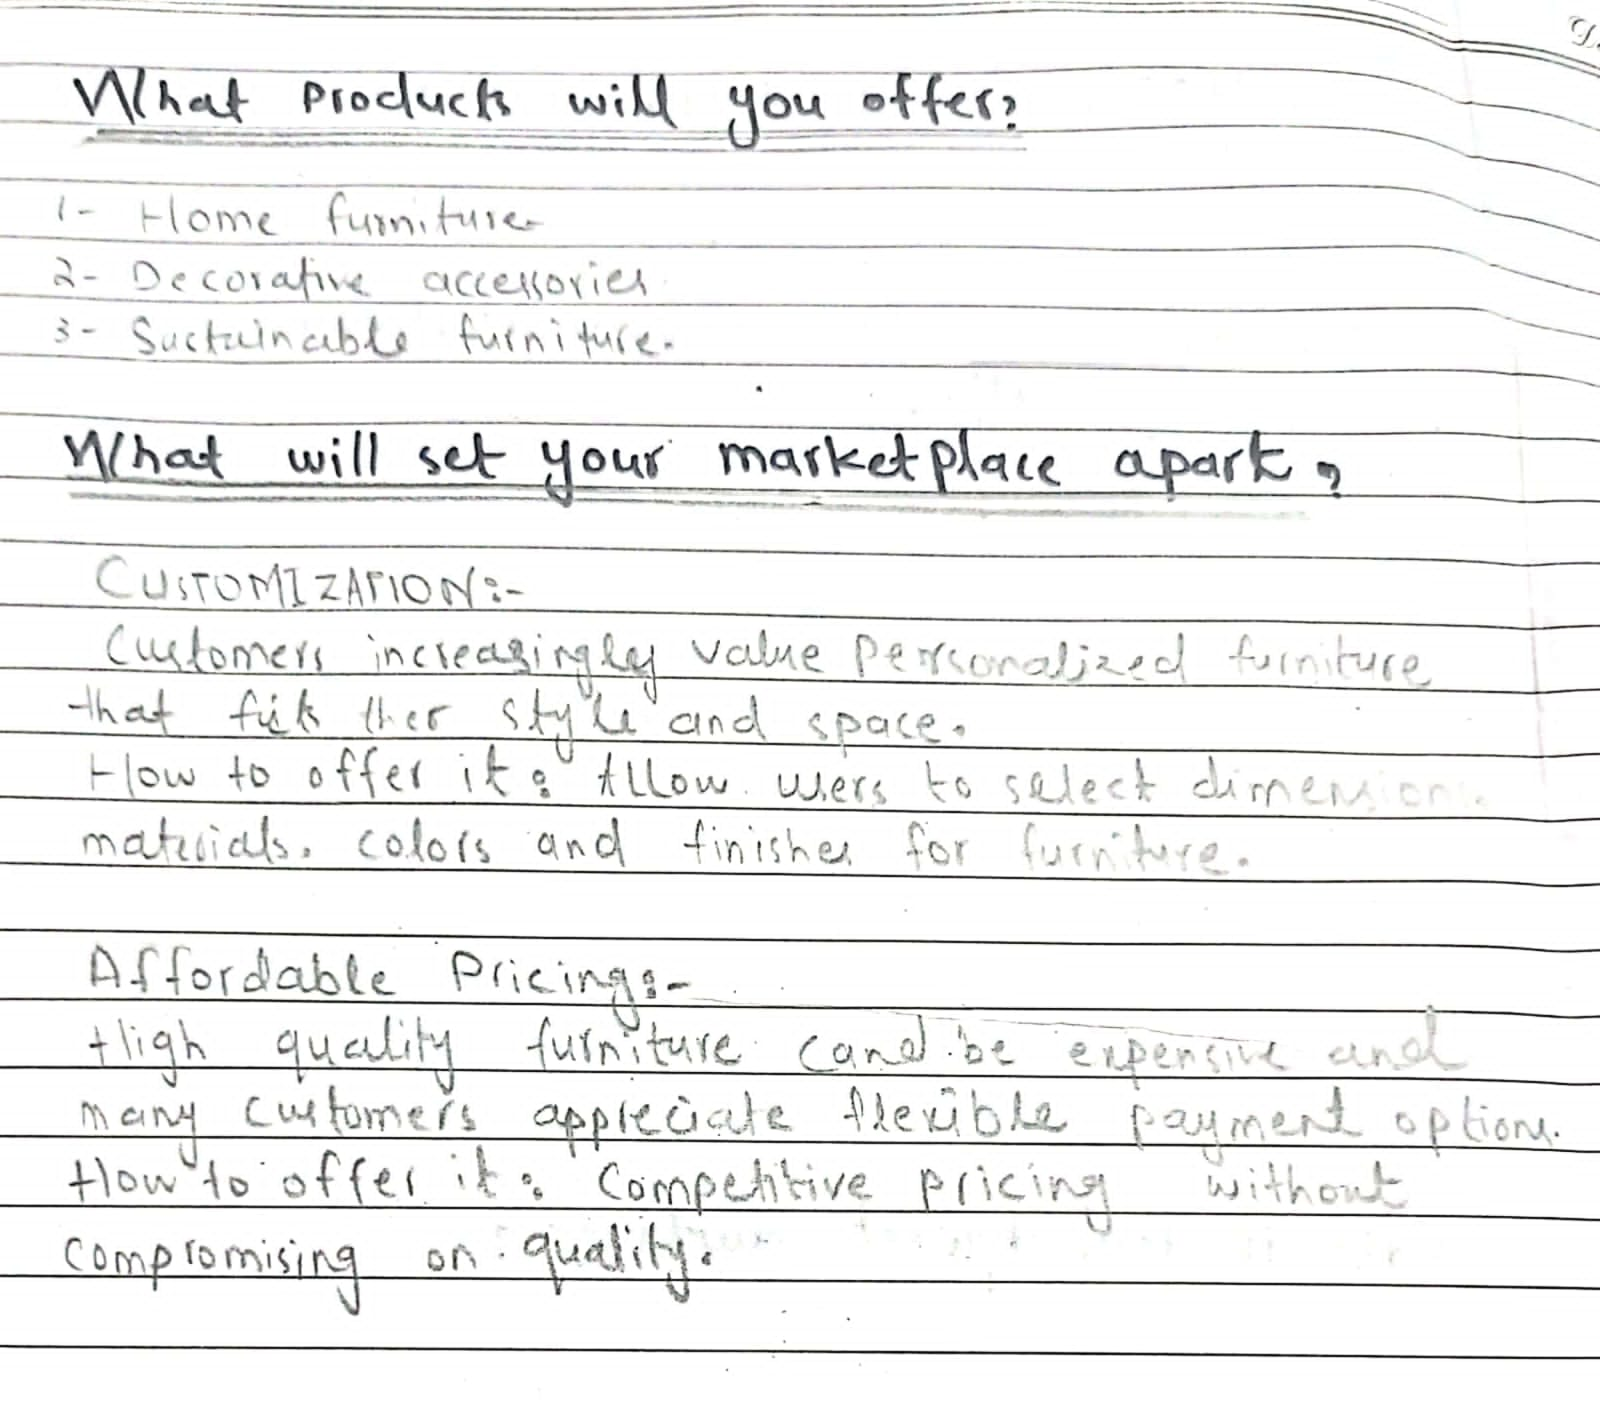 What products will you offer?
1- Home furniture
2- Decorative accessories
3- Sustainable furniture.
What will set your marketplace apart?
CUSTOMIZATION:-
Customers increasingly value personalized furniture
that fits ther style and space.
How to offer it: Allow users to select dimensions.
materials. colors and finishes for furniture.
Affordable Pricing:-
High quality furniture cand be expensive and
many customers appreciate flexible payment options.
How to offer it: Competitive pricing without
compromising on quality.